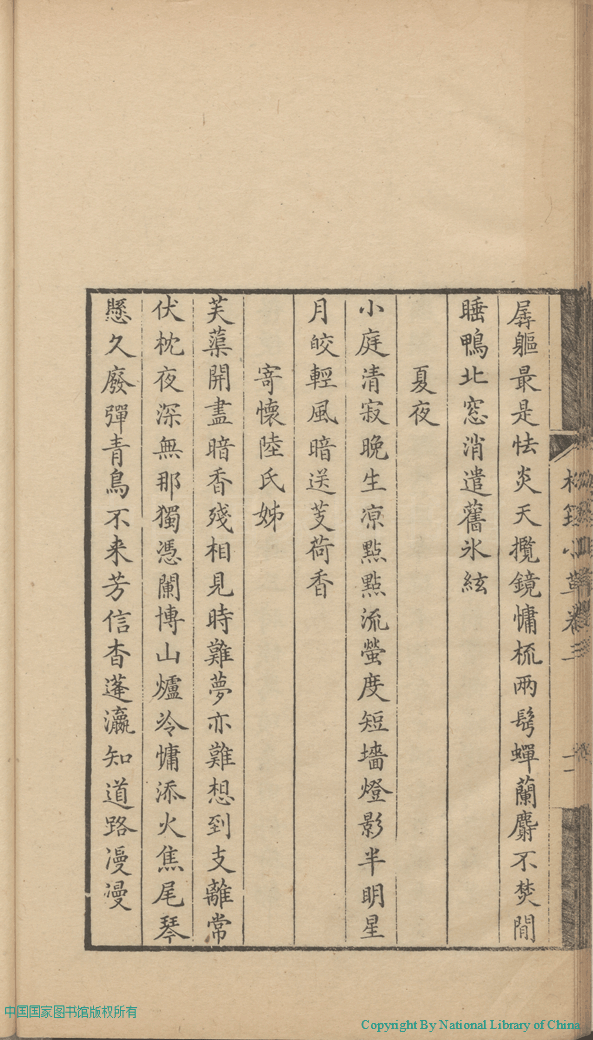 孱軀最是怯炎天攬鏡慵梳兩鬓蟬蘭麝不焚閒
睡鴨北窓消遣舊氷絃
夏夜
小庭清寂晚生凉點點流螢度短墻燈影半明星
月皎輕風暗送芰荷香
寄懷陸氏姊
芙蕖開盡暗香殘相見時難夢亦難想到支離常
伏枕夜深無那獨憑闌博山爐冷慵添火焦尾琴
懸久廢彈青鳥不来芳信杳蓬瀛知道路漫漫
小草卷三
中国国家图书馆版权所有
Copyright By National Library of China